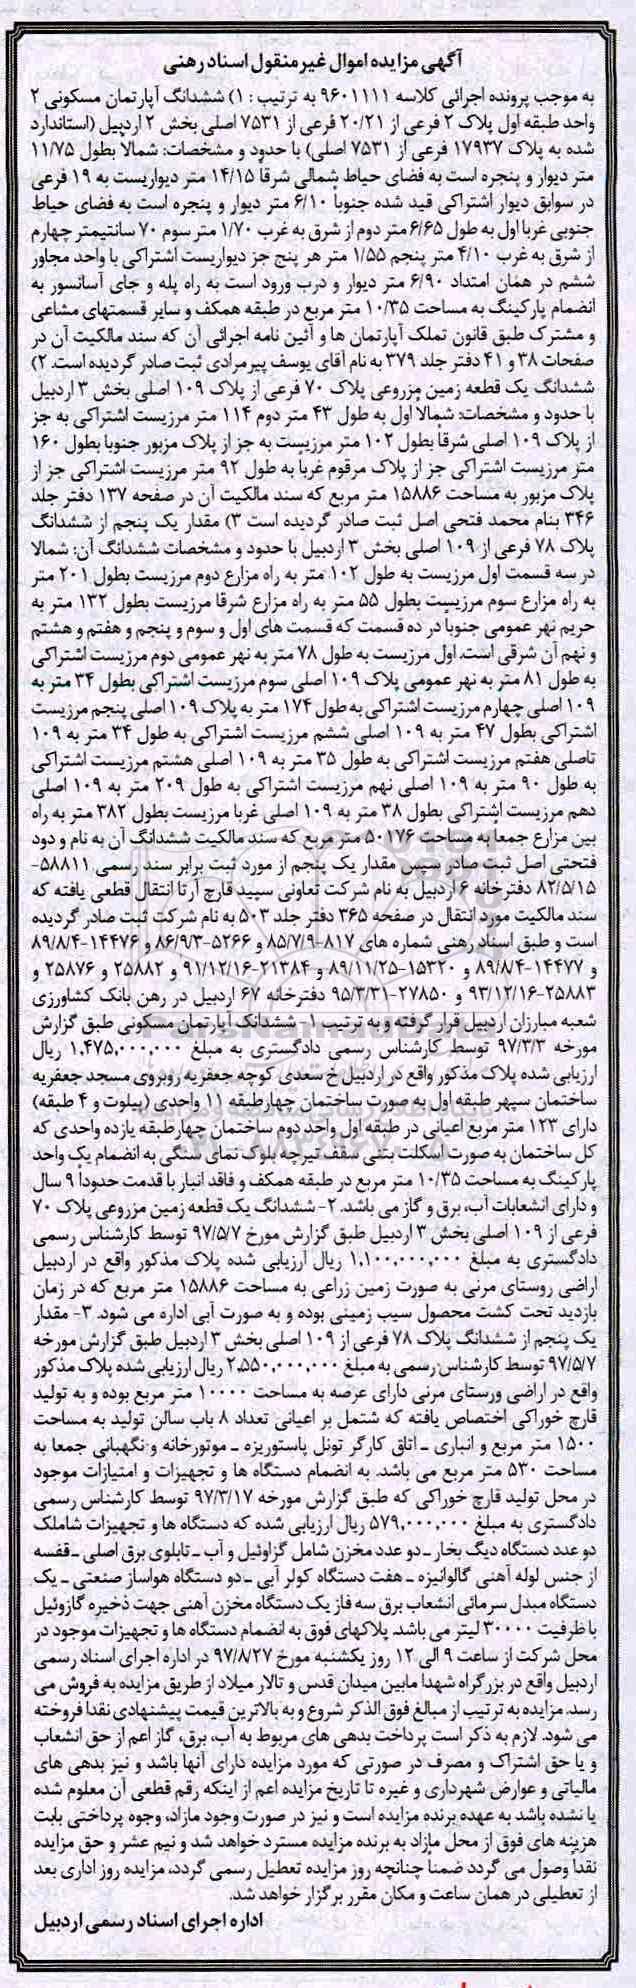 آگهی مزایده اموال غیرمنقول اسناد رهنی
به موجب پرونده اجرائی کلاسه ۹۶۰۱۱۱۱ به ترتیب : ۱) ششدانگ آپارتمان مسکونی ۲
واحد طبقه اول پلاک ۲ فرعی از ۲۰/۲۱ فرعی از ۷۵۳۱ اصلی بخش ۲ اردبیل (استاندارد
شده به پلاک ۱۷۹۳۷ فرعی از ۷۵۳۱ اصلی) با حدود و مشخصات: شمالا بطول ۱۱/۷۵
متر دیوار و پنجره است به فضای حیاط شمالی شرقاً ۱۴/۱۵ متر دیواریست به ۱۹ فرعی
در سوابق دیوار اشتراکی قید شده جنوبا ۶/۱۰ متر دیوار و پنجره است به فضای حیاط
جنوبی غربا اول به طول ۶/۶۵ متر دوم از شرق به غرب ۱/۷۰ متر سوم ۷۰ سانتیمتر چهارم
از شرق به غرب ۴/۱۰ متر پنجم ۱/۵۵ متر هر پنج جز دیواریست اشتراکی با واحد مجاور
ششم در همان امتداد ۶/۹۰ متر دیوار و درب ورود است به راه پله و جای آسانسور به
انضمام پارکینگ به مساحت ۱۰/۳۵ متر مربع در طبقه همکف و سایر قسمتهای مشاعی
و مشترک طبق قانون تملک آپارتمان ها و آئین نامه اجرائی آن که سند مالکیت آن در
صفحات ۳۸ و ۴۱ دفتر جلد ۳۷۹ به نام آقای یوسف پیرمرادی ثبت صادر گردیده است. ۲)
ششدانگ یک قطعه زمین مزروعی پلاک ۷۰ فرعی از پلاک ۱۰۹ اصلی بخش ۳ اردبیل
با حدود و مشخصات: شمالاً اول به طول ۴۳ متر دوم ۱۱۴ متر مرزیست اشتراکی به جز
از پلاک ۱۰۹ اصلی شرقاً بطول ۱۰۲ متر مرزیست به جز از پلاک مزبور جنوبا بطول ۱۶۰
متر مرزیست اشتراکی جز از پلاک مرقوم غرباً به طول ۹۲ متر مرزیست اشتراکی جز از
پلاک مزبور به مساحت ۱۵۸۸۶ متر مربع که سند مالکیت آن در صفحه ۱۳۷ دفتر جلد
۳۴۶ بنام محمد فتحی اصل ثبت صادر گردیده است ۳) مقدار یک پنجم از ششدانگ
پلاک ۷۸ فرعی از ۱۰۹ اصلی بخش ۳ اردبیل با حدود و مشخصات ششدانگ آن: شمالا
در سه قسمت اول مرزیست به طول ۱۰۲ متر به راه مزارع دوم مرزیست بطول ۲۰۱ متر
به راه مزارع سوم مرزیست بطول ۵۵ متر به راه مزارع شرقا مرزیست بطول ۱۳۲ متر به
حریم نهر عمومی جنوباً در ده قسمت که قسمت های اول و سوم و پنجم و هفتم و هشتم
و نهم آن شرقی است. اول مرزیست به طول ۷۸ متر به نهر عمومی دوم مرزیست اشتراکی
به طول ۸۱ متر به نهر عمومی پلاک ۱۰۹ اصلی سوم مرزیست اشتراکی بطول ۳۴ متر به
۱۰۹ اصلی چهارم مرزیست اشتراکی به طول ۱۷۴ متر به پلاک ۱۰۹ اصلی پنجم مرزیست
اشتراکی بطول ۴۷ متر به ۱۰۹ اصلی ششم مرزیست اشتراکی به طول ۳۴ متر به ۱۰۹
تاصلی هفتم مرزیست اشتراکی به طول ۳۵ متر به ۱۰۹ اصلی هشتم مرزیست اشتراکی
به طول ۹۰ متر به ۱۰۹ اصلی نهم مرزیست اشتراکی به طول ۲۰۹ متر به ۱۰۹ اصلی
دهم مرزیست اشتراکی بطول ۳۸ متر به ۱۰۹ اصلی غربا مرزیست بطول ۳۸۲ متر به راه
بین مزارع جمعاً به مساحت ۵۰۱۷۶ متر مربع که سند مالکیت ششدانگ آن به نام و دود
فتحتی اصل ثبت صادر سپس مقدار یک پنجم از مورد ثبت برابر سند رسمی ۵۸۸۱۱-
۸۲/۵/۱۵ دفترخانه ۶ اردبیل به نام شرکت تعاونی سپید قارچ آرتا انتقال قطعی یافته که
سند مالکیت مورد انتقال در صفحه ۳۶۵ دفتر جلد ۵۰۳ به نام شرکت ثبت صادر گردیده
است و طبق اسناد رهنی شماره های ۸۱۷-۸۵/۷/۹ و ۵۲۶۶-۸۶/۹/۳ و ۱۴۴۷۶-۸۹/۸/۴
و ۱۴۴۷۷-۸۹/۸/۴ و ۱۵۳۲۰-۸۹/۱۱/۲۵ و ۲۱۳۸۴-۹۱/۱۲/۱۶ و ۲۵۸۸۲ و ۲۵۸۷۶ و
۲۵۸۸۳-۹۳/۱۲/۱۶ و ۲۷۸۵۰-۹۵/۳/۳۱ دفترخانه ۶۷ اردبیل در رهن بانک کشاورزی
شعبه مبارزان اردبیل قرار گرفته و به ترتیب ۱- ششدانگ آپارتمان مسکونی طبق گزارش
مورخه ۹۷/۳/۳ توسط کارشناس رسمی دادگستری به مبلغ ۱،۴۷۵،۰۰۰،۰۰۰ ریال
ارزیابی شده پلاک مذکور واقع در اردبیل خ سعدی کوچه جعفریه روبروی مسجد جعفریه
ساختمان سپهر طبقه اول به صورت ساختمان چهارطبقه ۱۱ واحدی (پیلوت و ۴ طبقه)
دارای ۱۲۳ متر مربع اعیانی در طبقه اول واحد دوم ساختمان چهارطبقه یازده واحدی که
کل ساختمان به صورت اسکلت بتنی سقف تیرچه بلوک نمای سنگی به انضمام یک واحد
پارکینگ به مساحت ۱۰/۳۵ متر مربع در طبقه همکف و فاقد انبار با قدمت حدوداً ۹ سال
و دارای انشعابات آب، برق و گاز می باشد. ۲- ششدانگ یک قطعه زمین مزروعی پلاک ۷۰
فرعی از ۱۰۹ اصلی بخش ۳ اردبیل طبق گزارش مورخ ۹۷/۵/۷ توسط کارشناس رسمی
دادگستری به مبلغ ۱،۱۰۰،۰۰۰،۰۰۰ ریال ارزیابی شده پلاک مذکور واقع در اردبیل
اراضی روستای مرنی به صورت زمین زراعی به مساحت ۱۵۸۸۶ متر مربع که در زمان
بازدید تحت کشت محصول سیب زمینی بوده و به صورت آبی اداره می شود. ۳- مقدار
یک پنجم از ششدانگ پلاک ۷۸ فرعی از ۱۰۹ اصلی بخش ۳ اردبیل طبق گزارش مورخه
۹۷/۵/۷ توسط کارشناس رسمی به مبلغ ۲،۵۵۰،۰۰۰،۰۰۰ ریال ارزیابی شده پلاک مذکور
واقع در اراضی ورستای مرنی دارای عرصه به مساحت ۱۰۰۰۰ متر مربع بوده و به تولید
قارچ خوراکی اختصاص یافته که شتمل بر اعیانی تعداد ۸ باب سالن تولید به مساحت
۱۵۰۰ متر مربع و انباری ـ اتاق کارگر تونل پاستوریزه ـ موتورخانه و نگهبانی جمعا به
مساحت ۵۳۰ متر مربع می باشد. به انضمام دستگاه ها و تجهیزات و امتیازات موجود
در محل تولید قارچ خوراکی که طبق گزارش مورخه ۹۷/۳/۱۷ توسط کارشناس رسمی
دادگستری به مبلغ ۵۷۹،۰۰۰،۰۰۰ ریال ارزیابی شده که دستگاه ها و تجهیزات شاملک
دو عدد دستگاه دیگ بخار ـ دو عدد مخزن شامل گزاوئیل و آب ـ تابلوی برق اصلی ـ قفسه
از جنس لوله آهنی گالوانیزه ـ هفت دستگاه کولر آبی ـ دو دستگاه هواساز صنعتی ـ یک
دستگاه مبدل سرمائی انشعاب برق سه فاز یک دستگاه مخزن آهنی جهت ذخیره گازوئیل
با ظرفیت ۳۰۰۰۰ لیتر می باشد. پلاکهای فوق به انضمام دستگاه ها و تجهیزات موجود در
محل شرکت از ساعت ۹ الی ۱۲ روز یکشنبه مورخ ۹۷/۸/۲۷ در اداره اجرای اسناد رسمی
اردبیل واقع در بزرگراه شهدا مابین میدان قدس و تالار میلاد از طریق مزایده به فروش می
رسد. مزایده به ترتیب از مبالغ فوق الذکر شروع و به بالاترین قیمت پیشنهادی نقداً فروخته
می شود. لازم به ذکر است پرداخت بدهی های مربوط به آب، برق، گاز اعم از حق انشعاب
و یا حق اشتراک و مصرف در صورتی که مورد مزایده دارای آنها باشد و نیز بدهی های
مالیاتی و عوارض شهرداری و غیره تا تاریخ مزایده اعم از اینکه رقم قطعی آن معلوم شده
یا نشده باشد به عهده برنده مزایده است و نیز در صورت وجود مازاد، وجوه پرداختی بابت
هزینه های فوق از محل مازاد به برنده مزایده مسترد خواهد شد و نیم عشر و حق مزایده
نقداً وصول می گردد ضمناً چنانچه روز مزایده تعطیل رسمی گردد، مزایده روز اداری بعد
از تعطیلی در همان ساعت و مکان مقرر برگزار خواهد شد.
اداره اجرای اسناد رسمی اردبیل